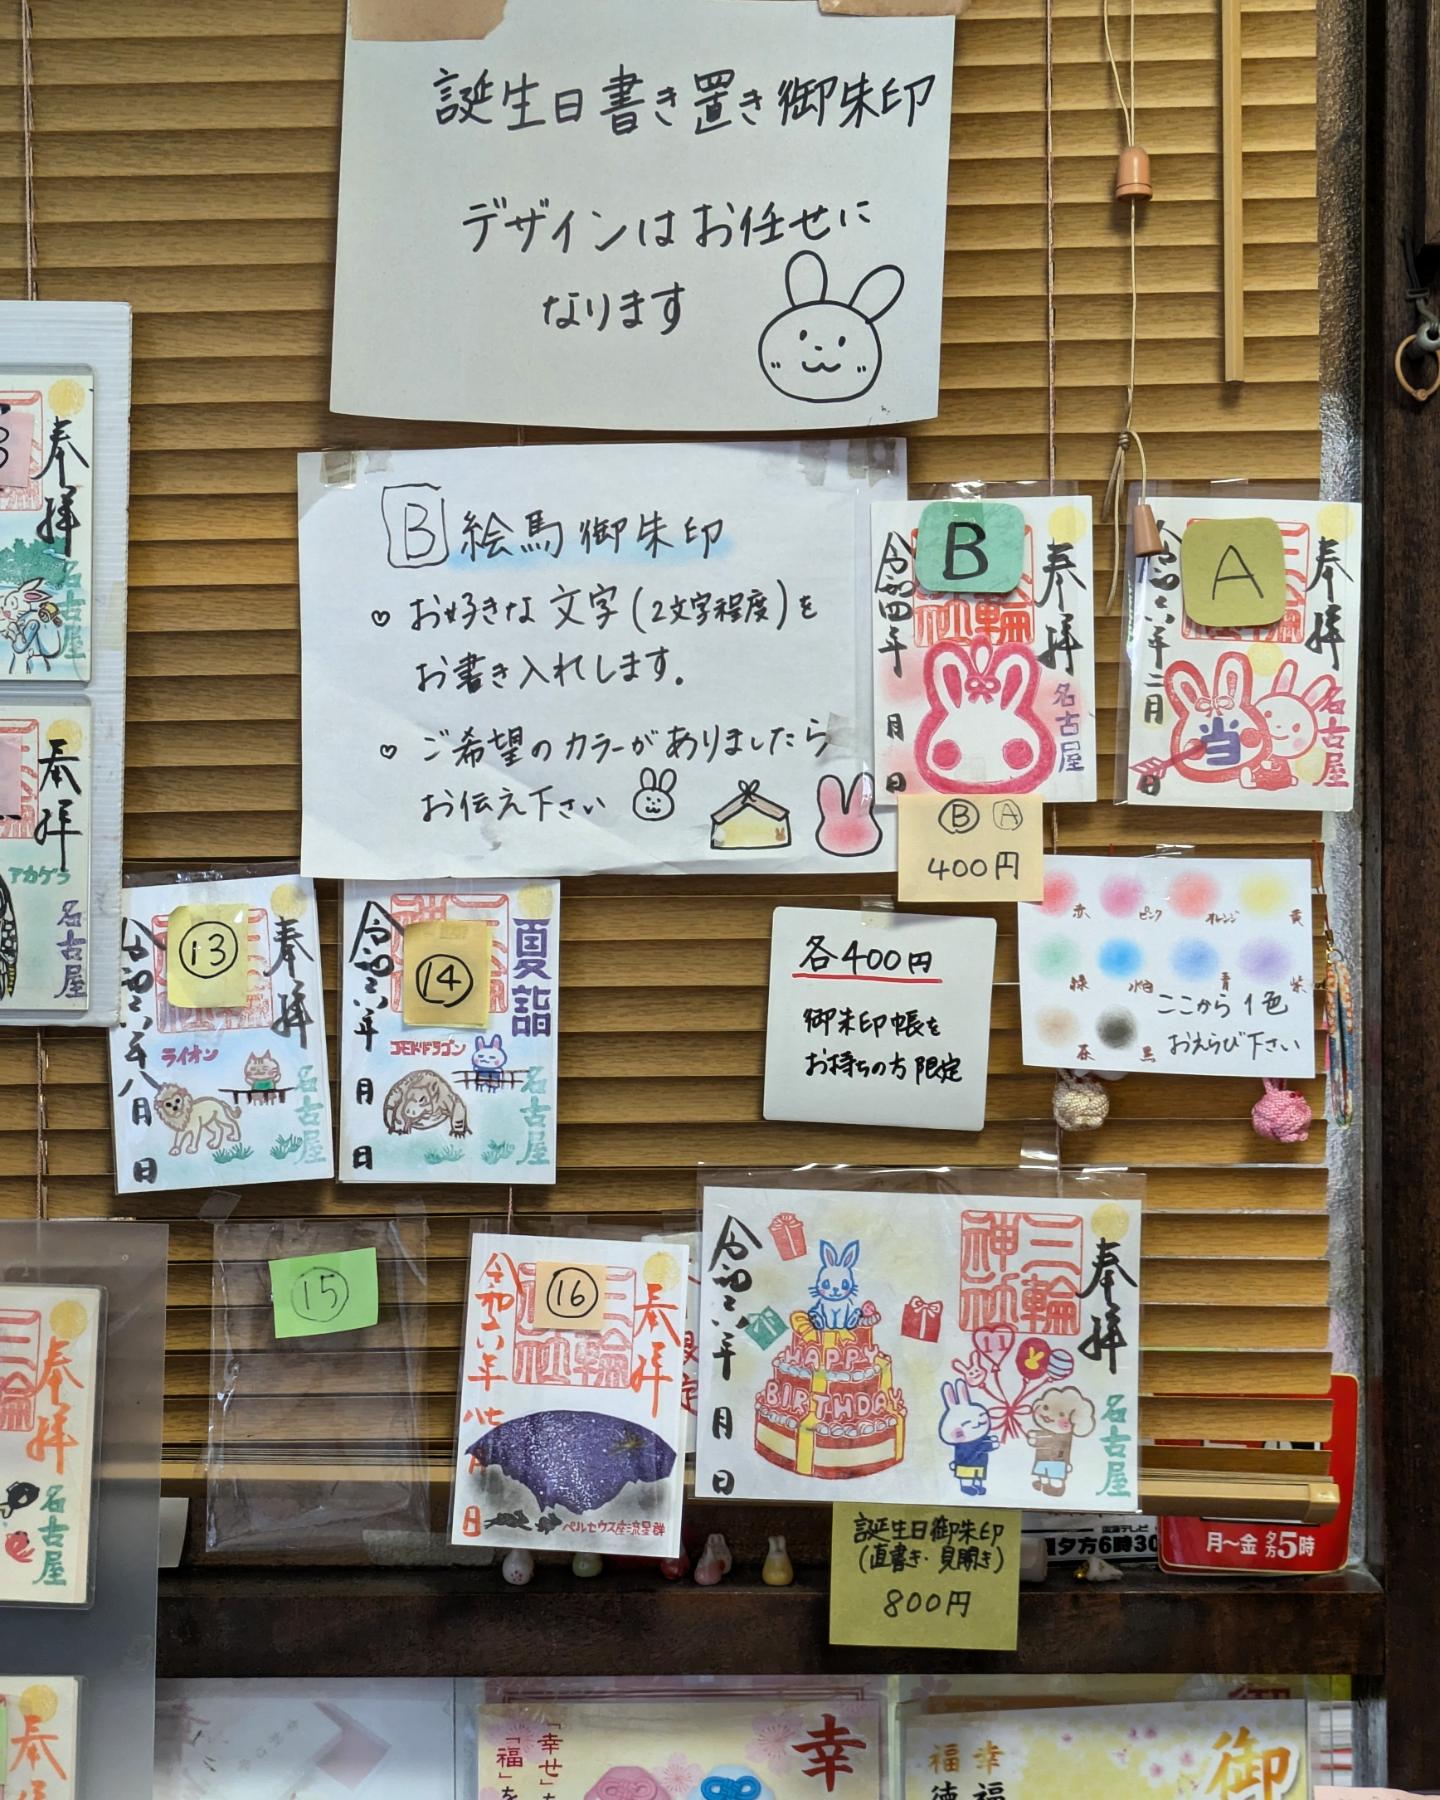 誕生日書き置き御朱印
デザインはお任せに
なります
B 絵馬御朱印
♡ お好きな文字(2文字程度)を
お書き入れします。
♡ ご希望のカラーがありましたら
お伝え下さい
B
奉拝
三輪神社
令和四年 月 日
名古屋
A
奉拝
令和六年二月 日
当
名古屋
Ⓑ Ⓐ
400円
赤 ピンク オレンジ 黄
緑 水色 青 紫
茶 黒
ここから1色
おえらび下さい
各400円
御朱印帳を
お持ちの方限定
奉拝
名古屋
奉拝
アカゲラ
名古屋
⑬
奉拝
令和六年八月 日
ライオン
名古屋
⑭
夏詣
令和六年 月 日
コモドドラゴン
名古屋
⑮
⑯
奉拝
三輪神社
令和六年
八月 日
ペルセウス座流星群
奉拝
三輪神社
令和六年 月 日
HAPPY
BIRTHDAY
名古屋
誕生日御朱印
(直書き・見開き)
800円
夕方6時30
月～金 夕方5時
奉拝
名古屋
奉
「幸せ」
「福」を
幸
幸福
福徳
御